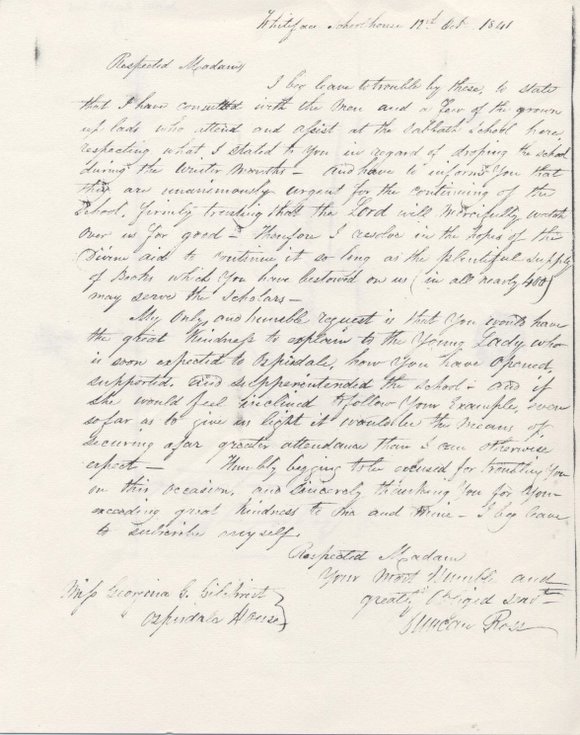 Whiteface Schoolhouse 12th Oct. 1841
Respected Madam
I beg leave to trouble by these, to state
that I have consulted with the Men and a few of the grown
up lads who attend and assist at the Sabbath School here,
respecting what I stated to You in regard of droping the school
during the Winter Months - and have to inform You that
they are unanimously urgent for the continuing of the
School, firmly trusting that the Lord will Mercifully watch
over us for good - Therefore I resolve in the hopes of the
Divine aid to continue it so long as the plentiful supply
of Books which You have bestowed on us (in all nearly 400)
may serve the Scholars -
My Only and humble request is that You would have
the great kindness to explain to the Young Lady who
is soon expected to Ospisdale, how You have Opened,
supported, and supperintended the School - and if
she would feel inclined to follow Your Example, even
so far as to give us light it would be the Means of
securing a far greater attendance than I can otherwise
expect - Humbly begging to be excused for troubling You
on this occasion, and sincerely thanking You for Your
exceeding great kindness to me and mine - I beg leave
to subscribe myself
Respected Madam
Your Most Humble and
greatly Obliged Servt
Duncan Ross
Miss Georgina G. Gilchrist
Ospisdale House